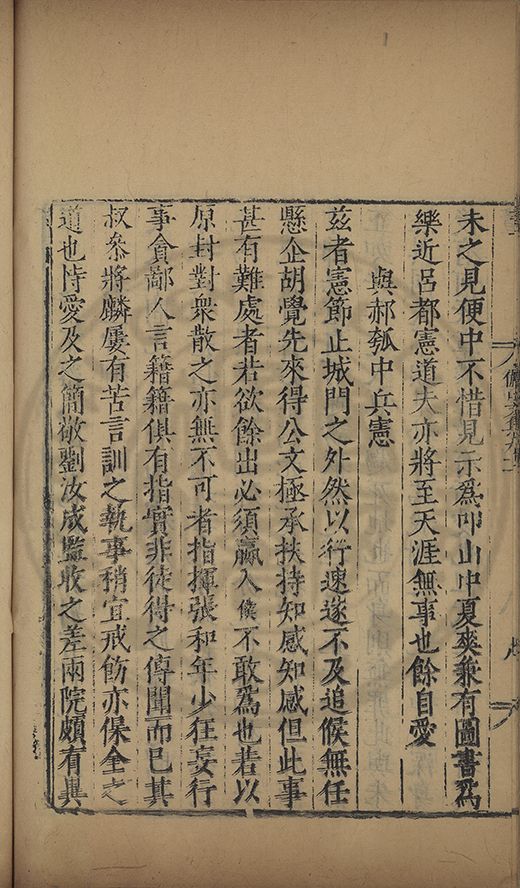 未之見便中不惜見示爲叩山中夏爽兼有圖書爲
樂近呂都憲道夫亦將至天涯無事也餘自愛
與郝瓠中兵憲
兹者憲節止城門之外然以行速遂不及追候無任
懸企胡覺先來得公文極承扶持知感知感但此事
甚有難處者若欲餘出必須贏入僕不敢爲也若以
原封對衆散之亦無不可者指揮張和年少狂妄行
事貪鄙人言籍籍俱有指實非徒得之傳聞而已其
叔叅將麟屢有苦言訓之執事稍宜戒飭亦保全之
道也恃愛及之簡敬劉汝成監收之差兩院頗有異